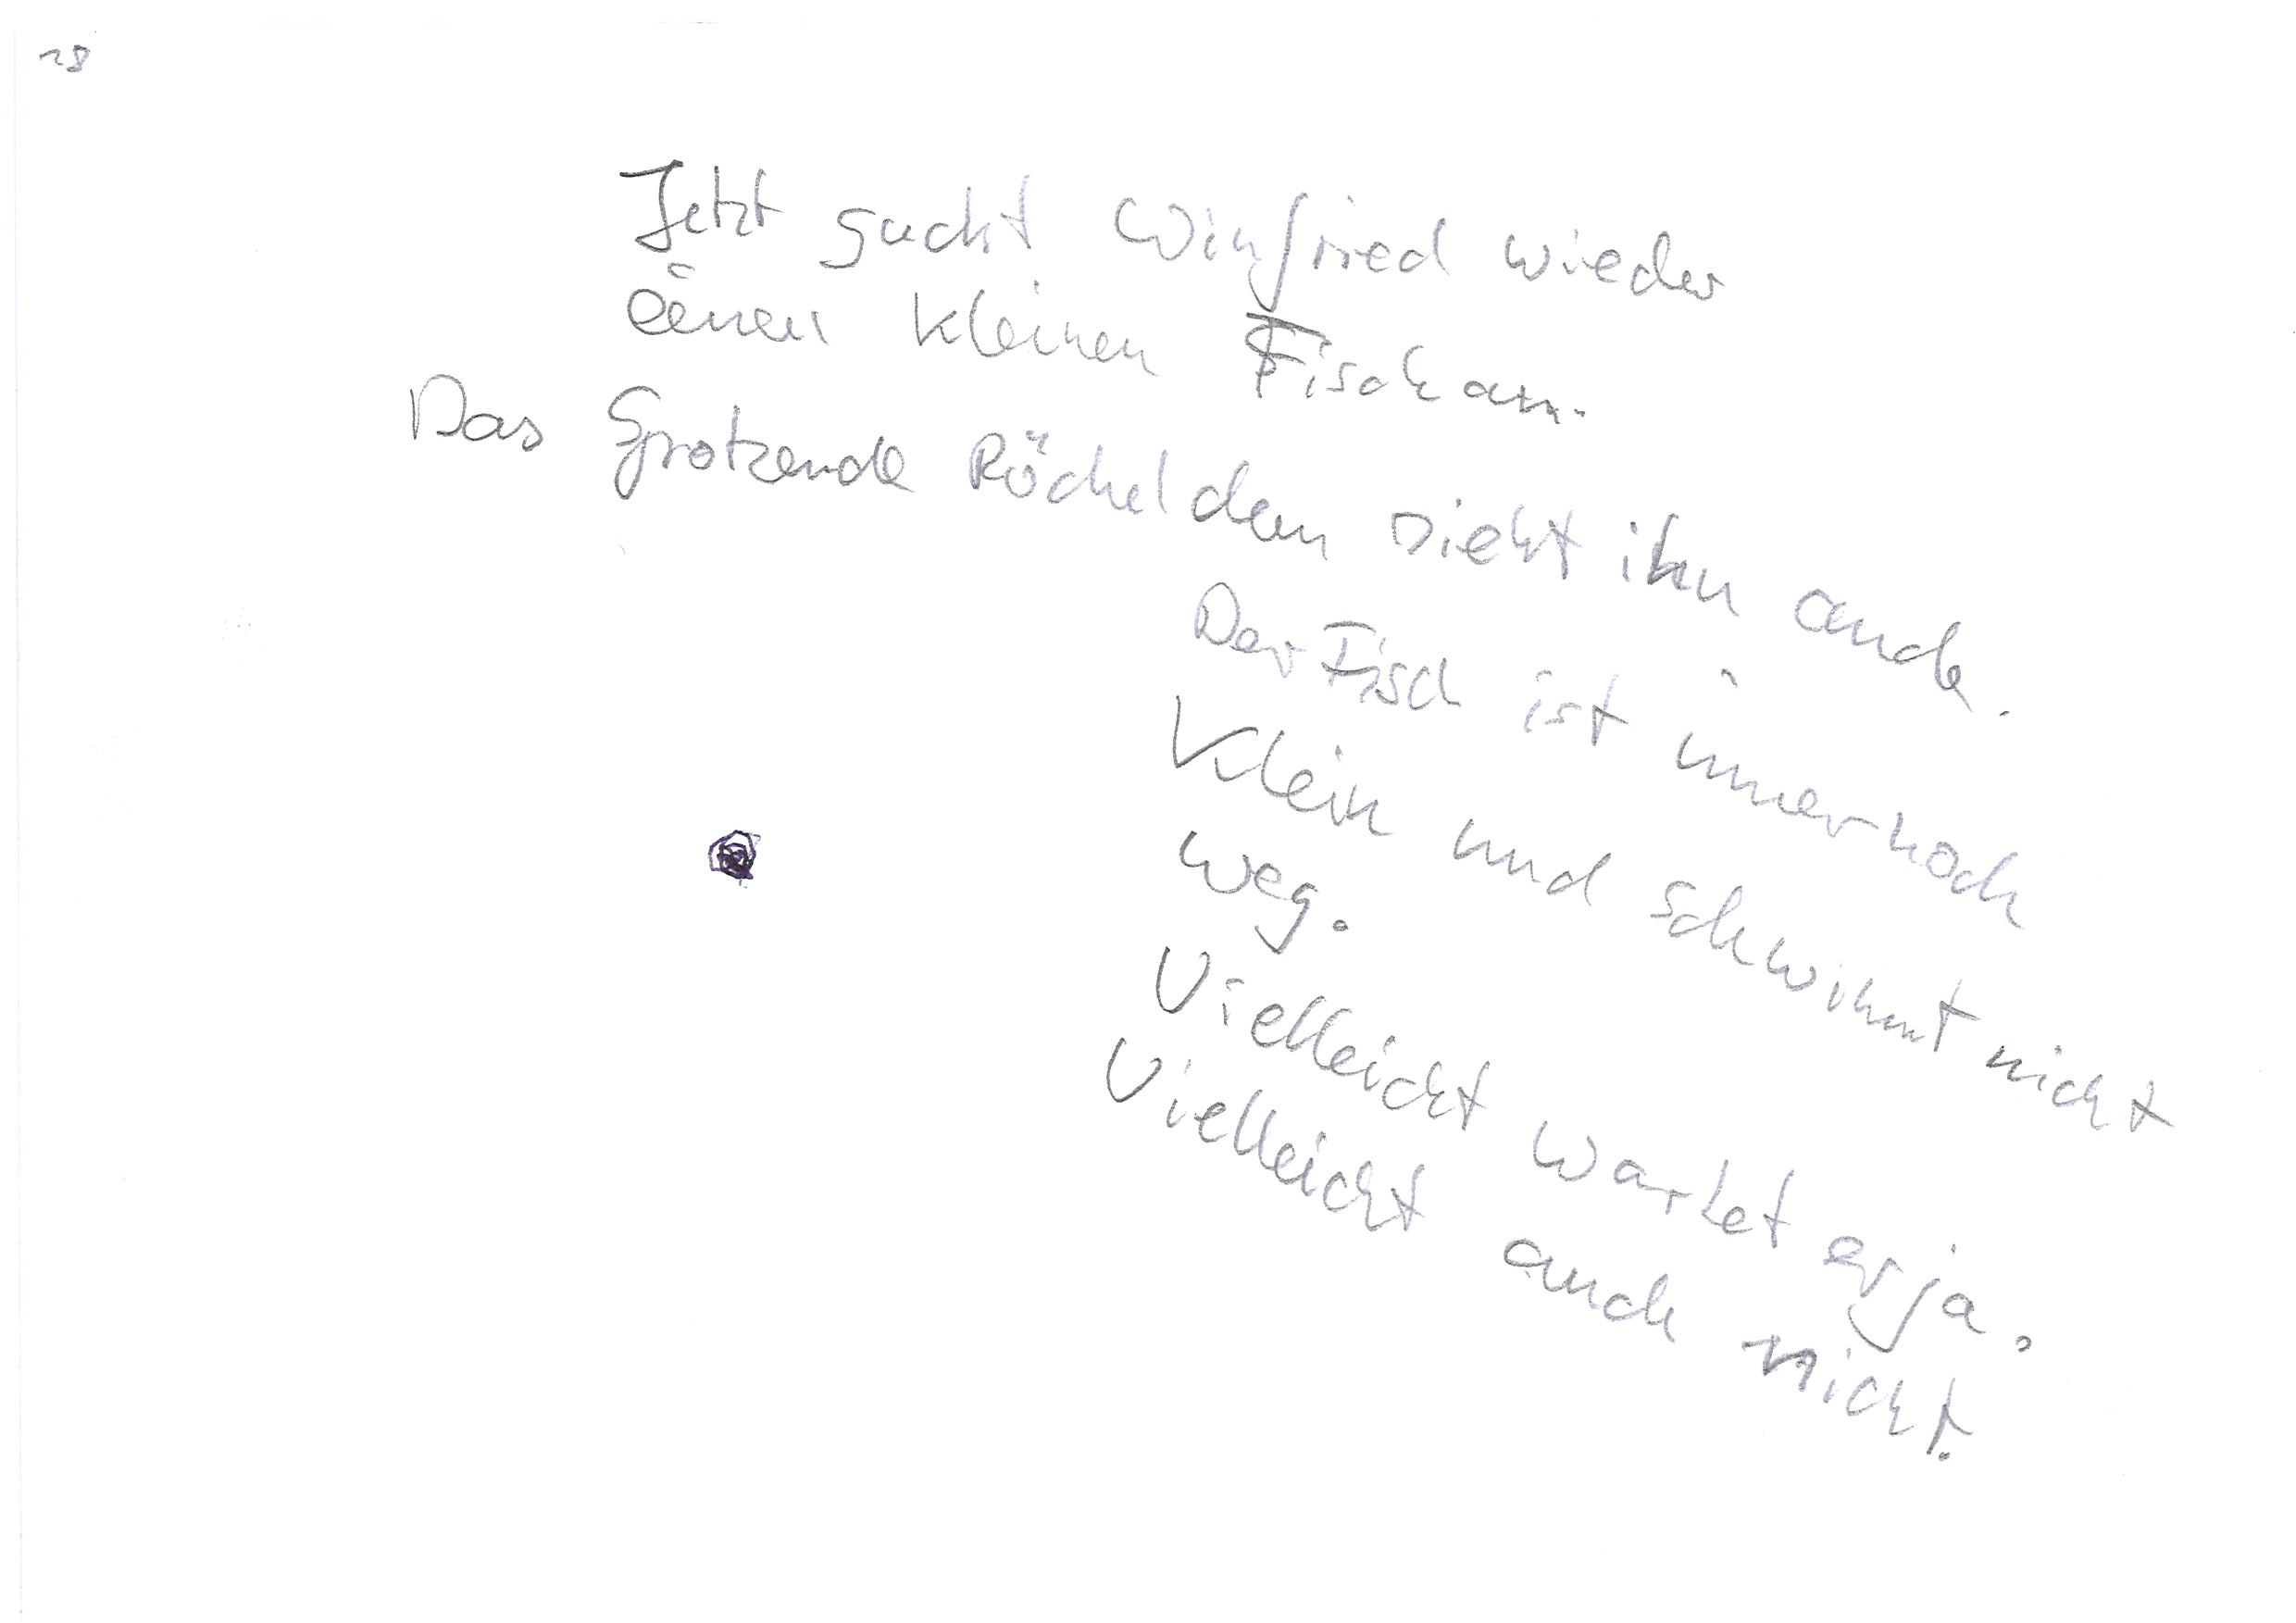 28
Jetzt guckt Winfried wieder
einen kleinen Fisch an.
Das Sprotzende Röcheldem sieht ihn auch.
Der Fisch ist immer noch
klein und schwimmt nicht
weg.
Vielleicht wartet er ja.
Vielleicht auch nicht.